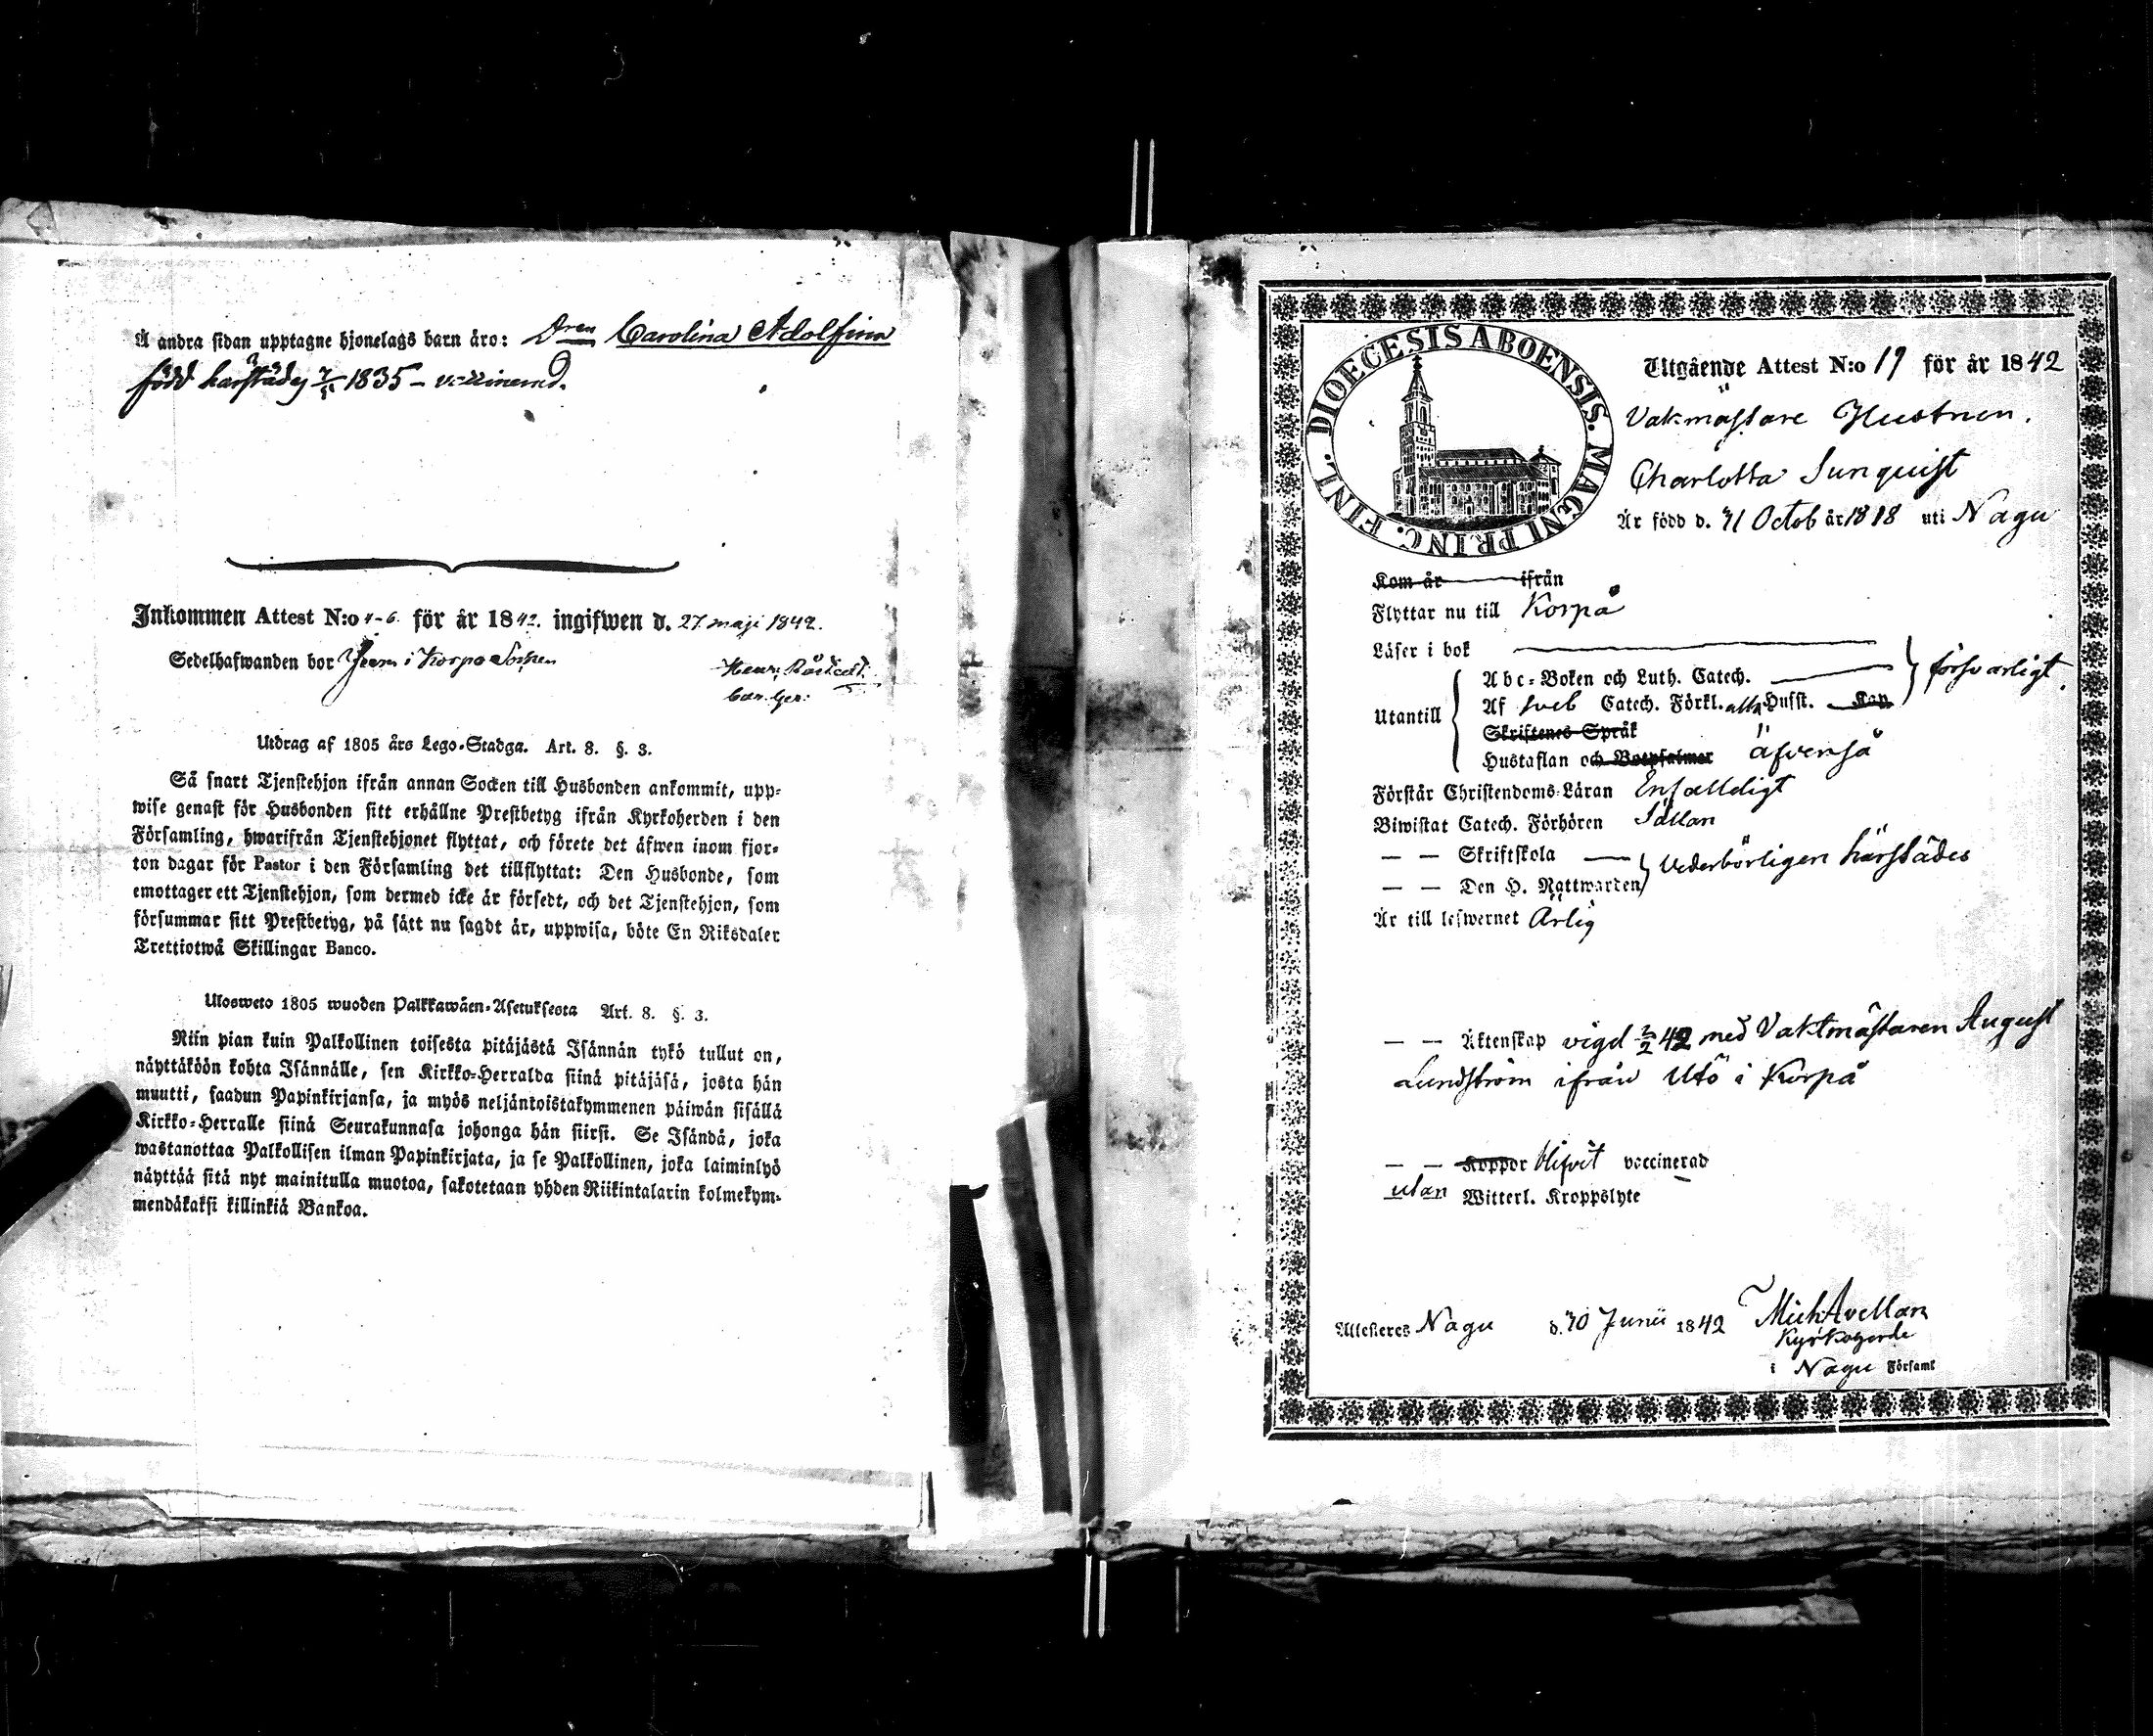 Å andra sidan upptagne hjonelags barn äro: Dren Carolina Adolfina
född härstädes 1835 – vaccinerad.
Inkommen Attest N:o för år 1842. ingifwen d. 27. maji 1842.
Sedelhafwanden bor i Korpo Socken
Utdrag af 1805 års Lego-Stadga. Art. 8. §. 3.
Så snart Tjenstehjon ifrån annan Socken till Husbonden ankommit, upp-
wise genast för Husbonden sitt erhållne Prestbetyg ifrån Kyrkoherden i den
Församling, hwarifrån Tjenstehjonet flyttat, och förete det äfwen inom fjor-
ton dagar för Pastor i den Församling det tillflyttat: Den Husbonde, som
emottager ett Tjenstehjon, som dermed icke är försedt, och det Tjenstehjon, som
försummar sitt Prestbetyg, på sätt nu sagdt är, uppwisa, böte En Riksdaler
Trettiotwå Skillingar Banco.
Ulosweto 1805 wuoden Palkkawäen-Asetuksesta Art. 8. §. 3.
Niin pian kuin Palkollinen toisesta pitäjästä Isännän tykö tullut on,
näyttäköön kohta Isännälle, sen Kirkko-Herralda siinä pitäjäsä, josta hän
muutti, saadun Papinkirjansa, ja myös neljäntoistakymmenen päiwän sisällä
Kirkko-Herralle siinä Seurakunnasa johonga hän siirsi. Se Isändä, joka
wastanottaa Palkollisen ilman Papinkirjata, ja se Palkollinen, joka laiminlyö
näyttää sitä nyt mainitulla muotoa, sakotetaan yhden Riikintalarin kolmekym-
mendäkaksi killinkiä Bankoa.
DIOECESIS ABOENSIS. MAGNI PRINC. FINL.
Utgående Attest N:o 19 för år 1842
Vakmästare Hustrun.
Charlotta Sunquist
Är född d. 31 Octob år 1818 uti Nagu
Kom år ifrån
Flyttar nu till Korpå
Läser i bok
Abc-Boken och Luth. Catech. försvarligt
Utantill Af sveb Catech. Förkl. alla Hufst. Kap
Skriftenes Språk
Hustaflan och Botpsalmer äfvenså
Förstår Christendoms-Läran Enfalldigt
Biwistat Catech. Förhören Sällan
— — Skriftskola — vederbörligen härstädes
— — Den H. Nattwarden
Är till lefwernet Ärlig
— — Äktenskap vigd 42 med Vaktmästaren August
Lundström ifrån Utö i Korpå
— — Koppor blifvit vaccinerad
utan Witterl. Kroppslyte
Attesteres Nagu d. 30 Junii 1842 Mich Avellan
Kyrkoherde
i Nagu Församl